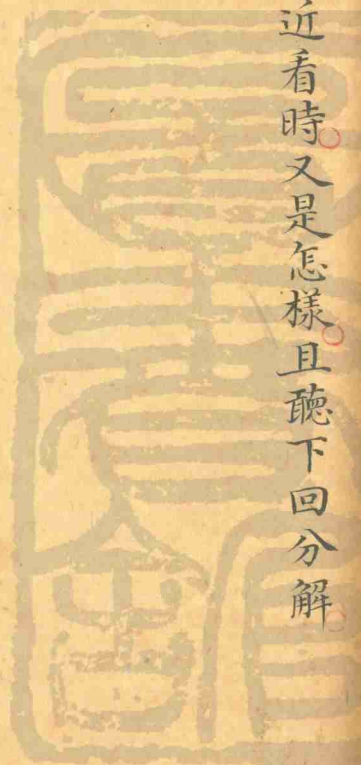 近看時。又是怎樣。且聽下回分解。